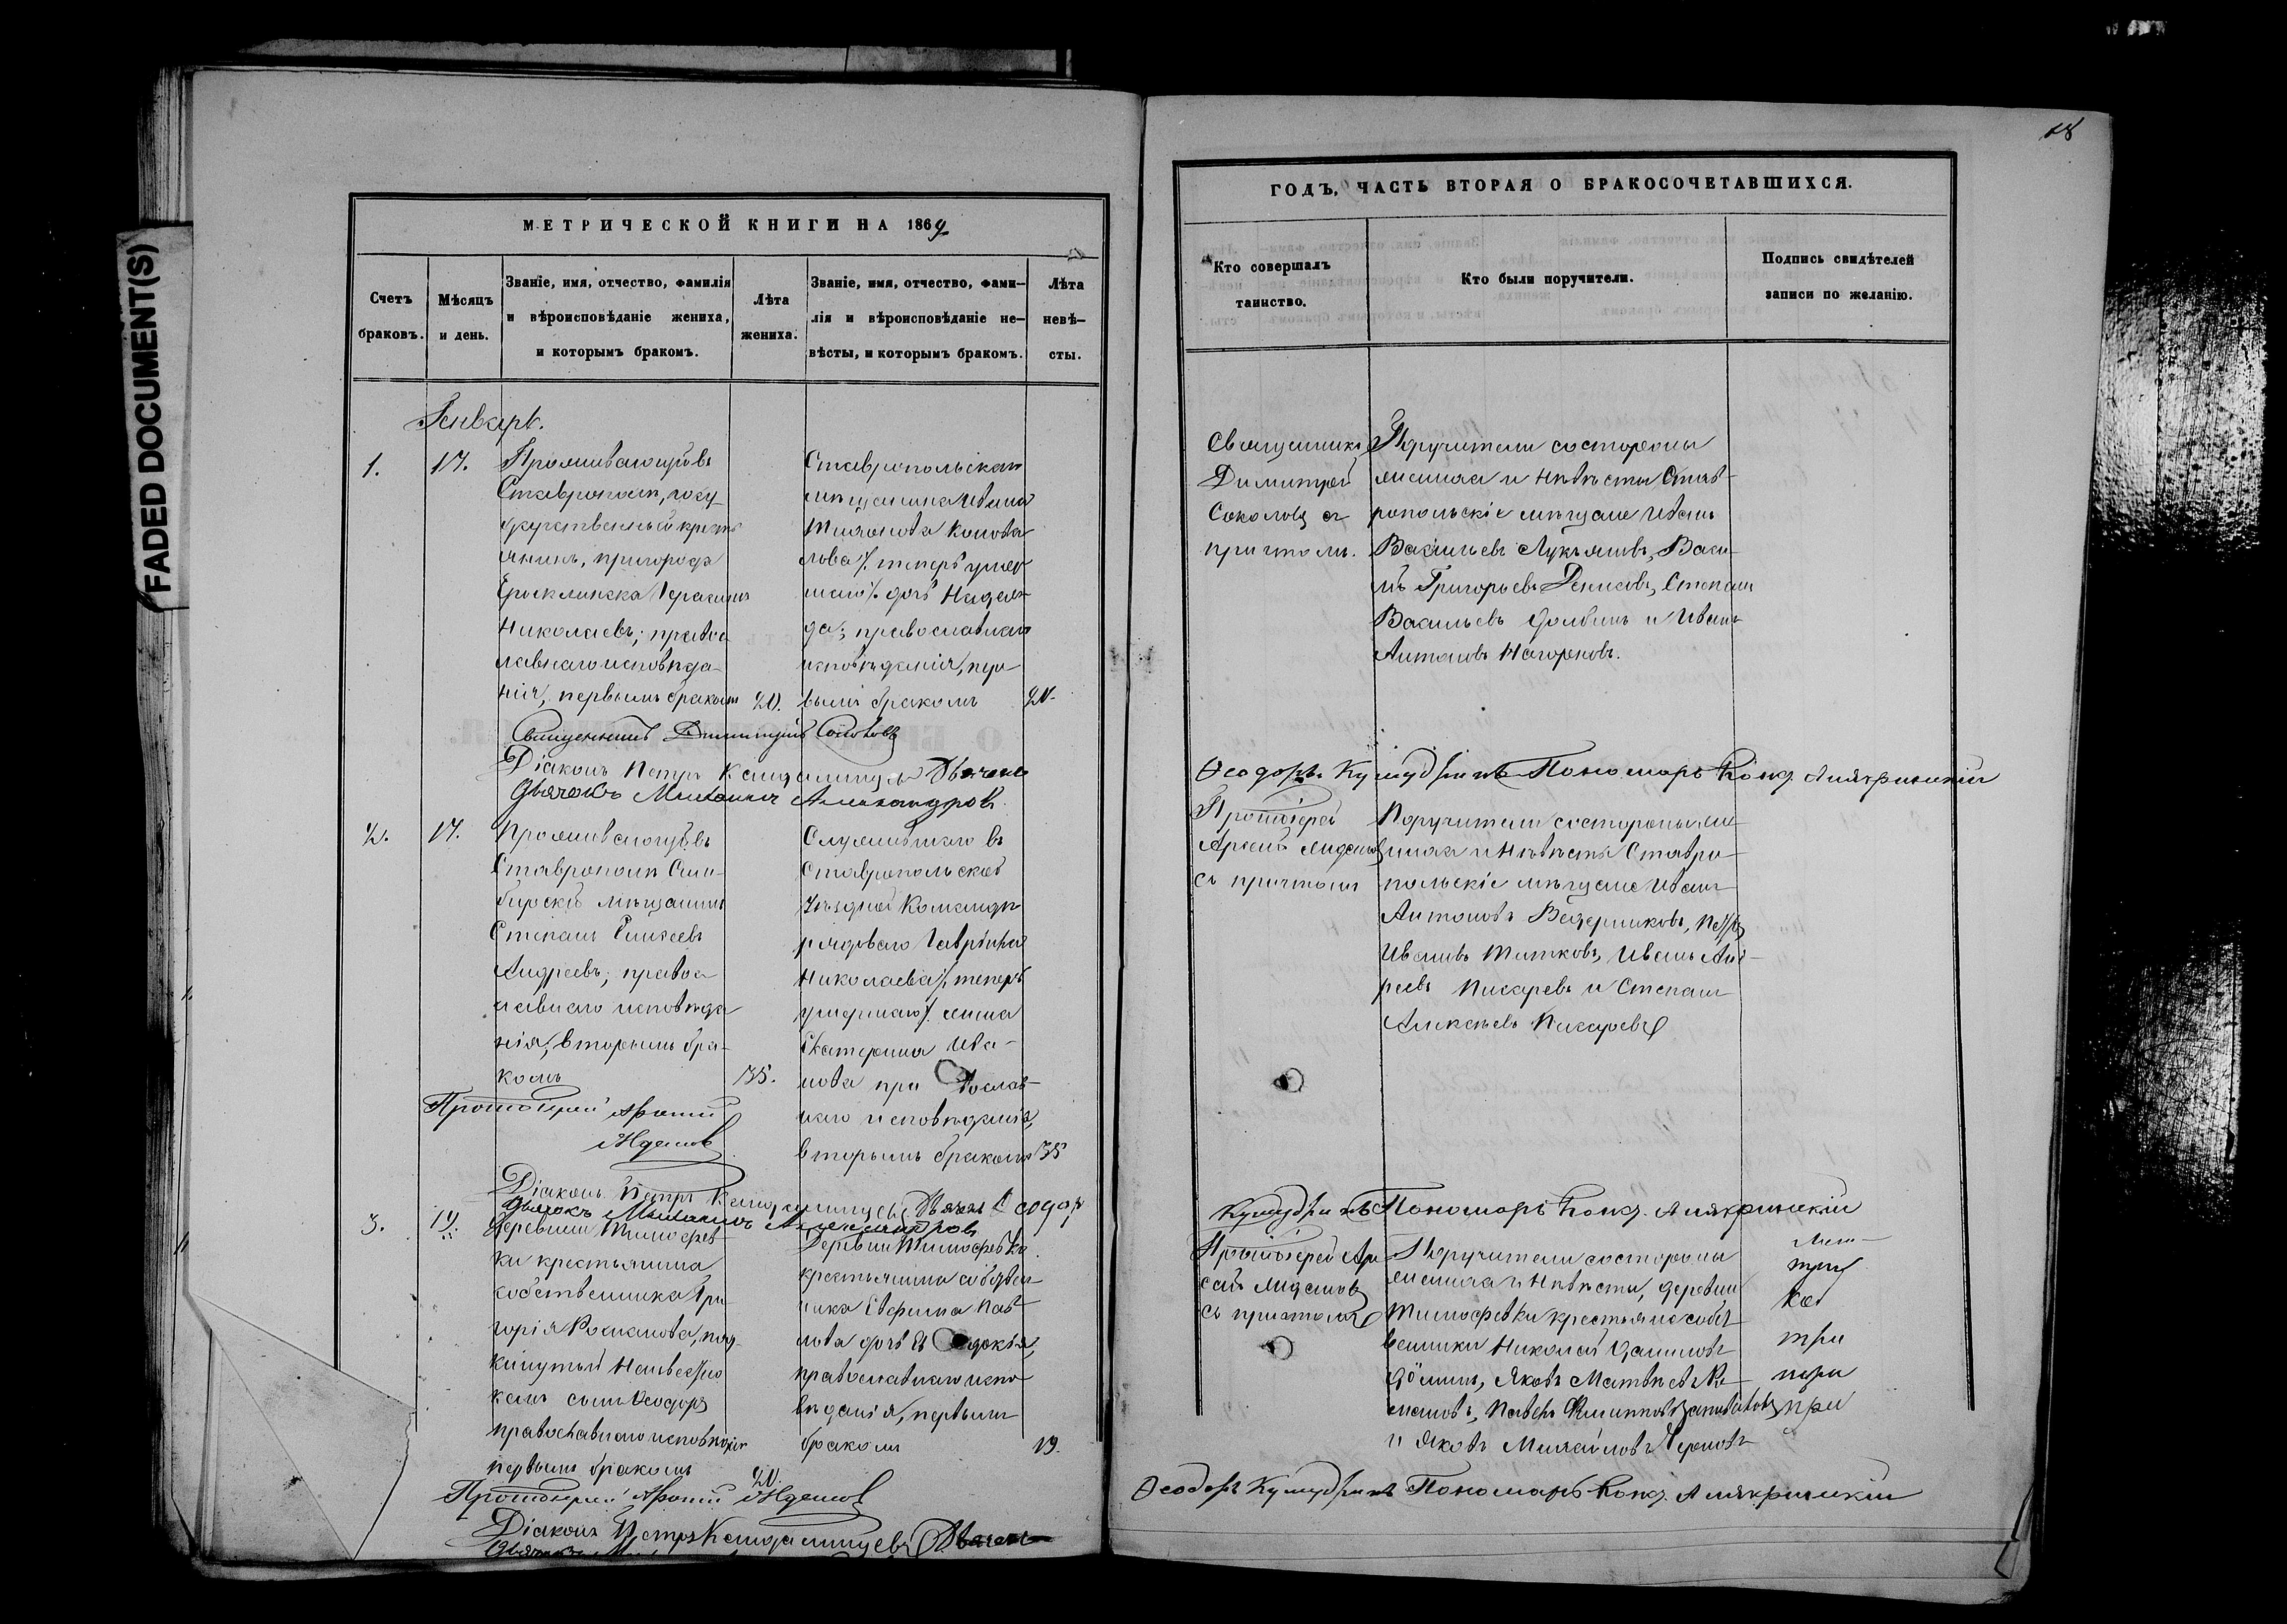 FADED DOCUMENT(S)
МЕТРИЧЕСКОЙ КНИГИ НА 1869
Счетъ браковъ.
Мѣсяцъ и день.
Званіе, имя, отчество, фамилія
и вѣроисповѣданіе жениха,
и которымъ бракомъ.
Лѣта жениха.
Званіе, имя, отчество, фами-
лія и вѣроисповѣданіе не-
вѣсты, и которымъ бракомъ.
Лѣта невѣ-
сты.
Генварь.
1.
17.
Проживающій въ
Ставрополѣ, госу
дарственный крестъ
янинъ, пригорода
Герасимъ
Николаевъ; правос
лавнаго исповѣда-
нія, первымъ бракомъ
20.
Ставропольскаго
мѣщанина Ивана
Конова
лова /. теперь умер
шаго /. дочь Надеж
да; православнаго
исповѣданія, пер
вымъ бракомъ
20.
Священникъ Димитрій Соколовъ
Діаконъ Петръ
Дьячокъ Михаилъ Александровъ
2.
17.
Проживающій въ
Ставрополѣ Сим-
бирскій мѣщанинъ
Степанъ
Андреевъ; правос
лавнаго исповѣда
нія, вторымъ бра-
комъ
35.
Служившаго въ
Ставропольской
Уѣздной Командѣ
рядоваго Гавріила
Николаева /. теперь
умершаго /. жена
Екатерина Ива-
нова православ-
наго исповѣданія,
вторымъ бракомъ
35
Протоіерей
Діаконъ Петръ
Дьячокъ Михаилъ Александровъ
3.
19.
Деревни Тимофеев
ки крестьянина
собственника Гри
горія Романова, под
кинутый неизвестно
кемъ сынъ Ѳеодоръ
православнаго исповѣданія
первымъ бракомъ
20.
Деревни Тимофеевки
крестьянина собствен
ника Ефима Пав
лова дочь Евдокія,
православнаго испо
вѣданія, первымъ
бракомъ
19.
Протоіерей
Діаконъ Петръ
18
ГОДЪ, ЧАСТЬ ВТОРАЯ О БРАКОСОЧЕТАВШИХСЯ.
Кто совершалъ
таинство.
Кто были поручители.
Подпись свидѣтелей
записи по желанію.
Священникъ
Димитрій
Соколовъ съ
причтомъ.
Поручители со стороны
жениха и невѣсты Став-
ропольскіе мѣщане Иванъ
Васильевъ Лукьяновъ, Васи-
лій Григорьевъ Денисовъ, Степанъ
Васильевъ и Иванъ
Антоновъ Нагорновъ.
Ѳеодоръ Кумудринъ Пономарь Конд.
Протоіерей
съ причтомъ
Поручители со стороны же-
ниха и невѣсты Ставро-
польскіе мѣщане Иванъ
Антоновъ Петръ
Ивановъ Титковъ, Иванъ Анд-
реевъ Писаревъ и Степанъ
Алексѣевъ Писаревъ
Пономарь Конд.
Протоіерей
съ причтомъ
Поручители со стороны
жениха и невѣсты, деревни
Тимофеевки крестьяне собст
венники Николай Даниловъ
Яковъ Матвѣевъ Ро
мановъ, Павелъ
и Яковъ Михайловъ Черновъ
при
при
Ѳеодоръ Кумудринъ Пономарь Конд.